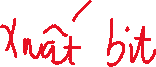 xuất bit